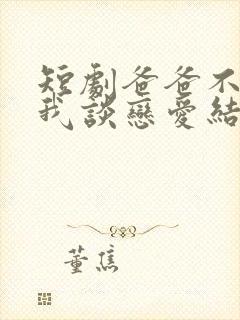 短劇爸爸不
我談戀愛結
董焦